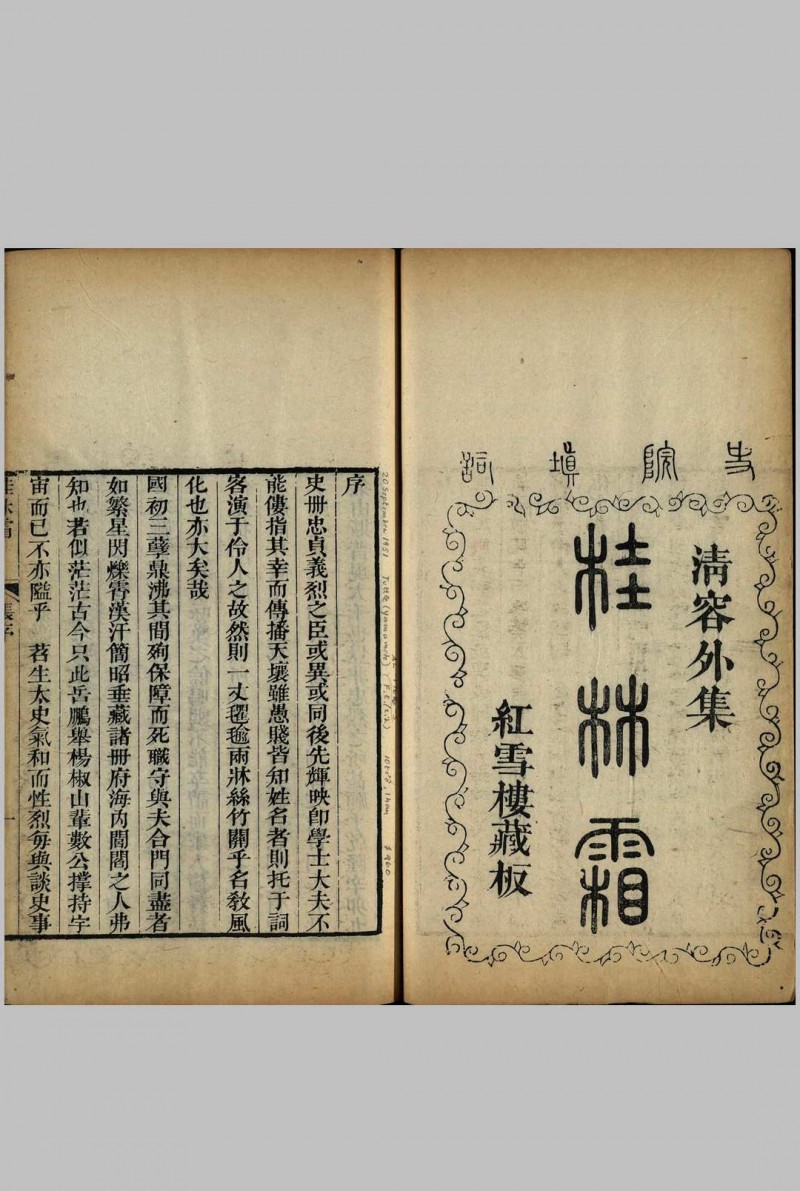 史院填詞
清容外集
桂林霜
紅雪樓藏板
20 September 1951 Tuttle (Yamamoto)
序
史冊忠貞義烈之臣或異或同後先輝映卽學士大夫不
能僂指其幸而傳播天壤雖愚賤皆知姓名者則托于詞
客演于伶人之故然則一丈氍毹兩牀絲竹關乎名敎風
化也亦大矣哉
國初三孽鼎沸其間殉保障而死職守與夫合門同盡者
如繁星閃爍霄漢汗簡昭垂藏諸冊府海內閭閻之人弗
知也若似茫茫古今只此岳鵬舉楊椒山輩數公撐持宇
宙而已不亦隘乎 苕生太史氣和而性烈每與談史事
桂林霜 張序 一